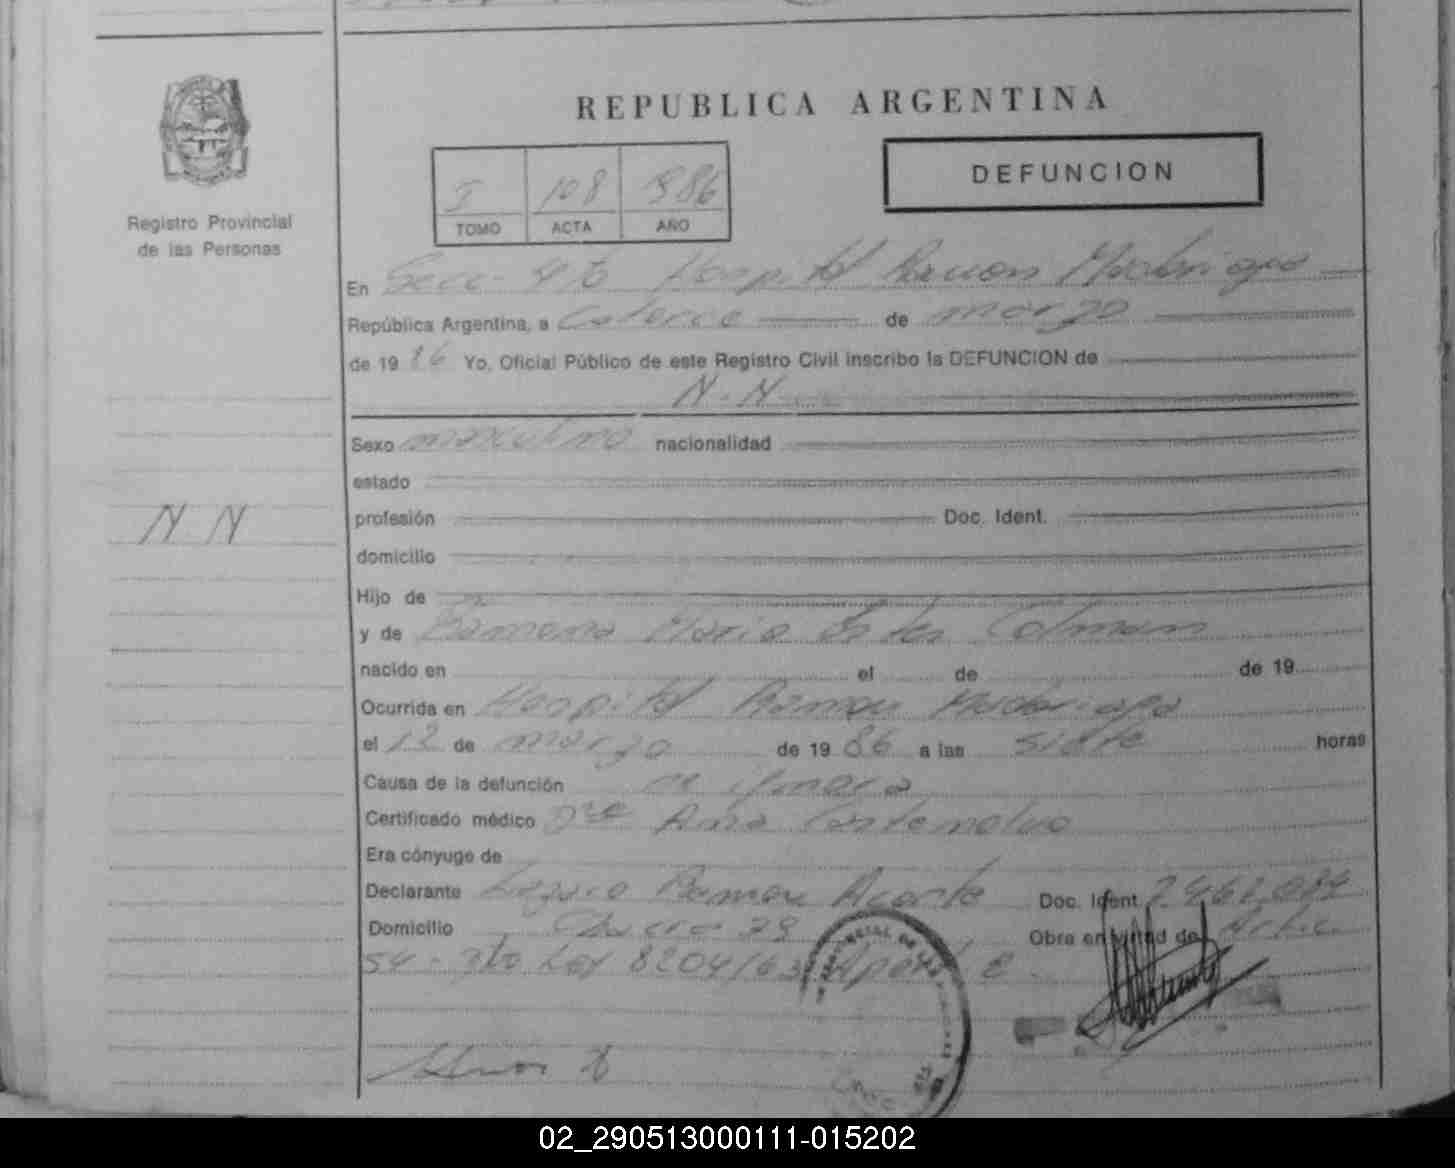 REPUBLICA ARGENTINA
DEFUNCION
I 108 986
TOMO ACTA AÑO
Registro Provincial
de las Personas
En Secc. 4ta Hospital Ramon Madariaga
República Argentina, a Catorce de marzo
de 19 86 Yo, Oficial Público de este Registro Civil inscribo la DEFUNCION de
N. N
Sexo masculino nacionalidad
estado
N N
profesión Doc. Ident.
domicilio
Hijo de
y de Ramona Maria Colman
nacido en el de de 19
Ocurrida en Hospital Ramon Madariaga
el 12 de marzo de 19 86 a las siete horas
Causa de la defunción
Certificado médico Dra Ana
Era cónyuge de
Declarante Ramon Acosta Doc. Ident
Domicilio 29 Obra en virtud de
54 - Ley 8204/63
02_290513000111-015202